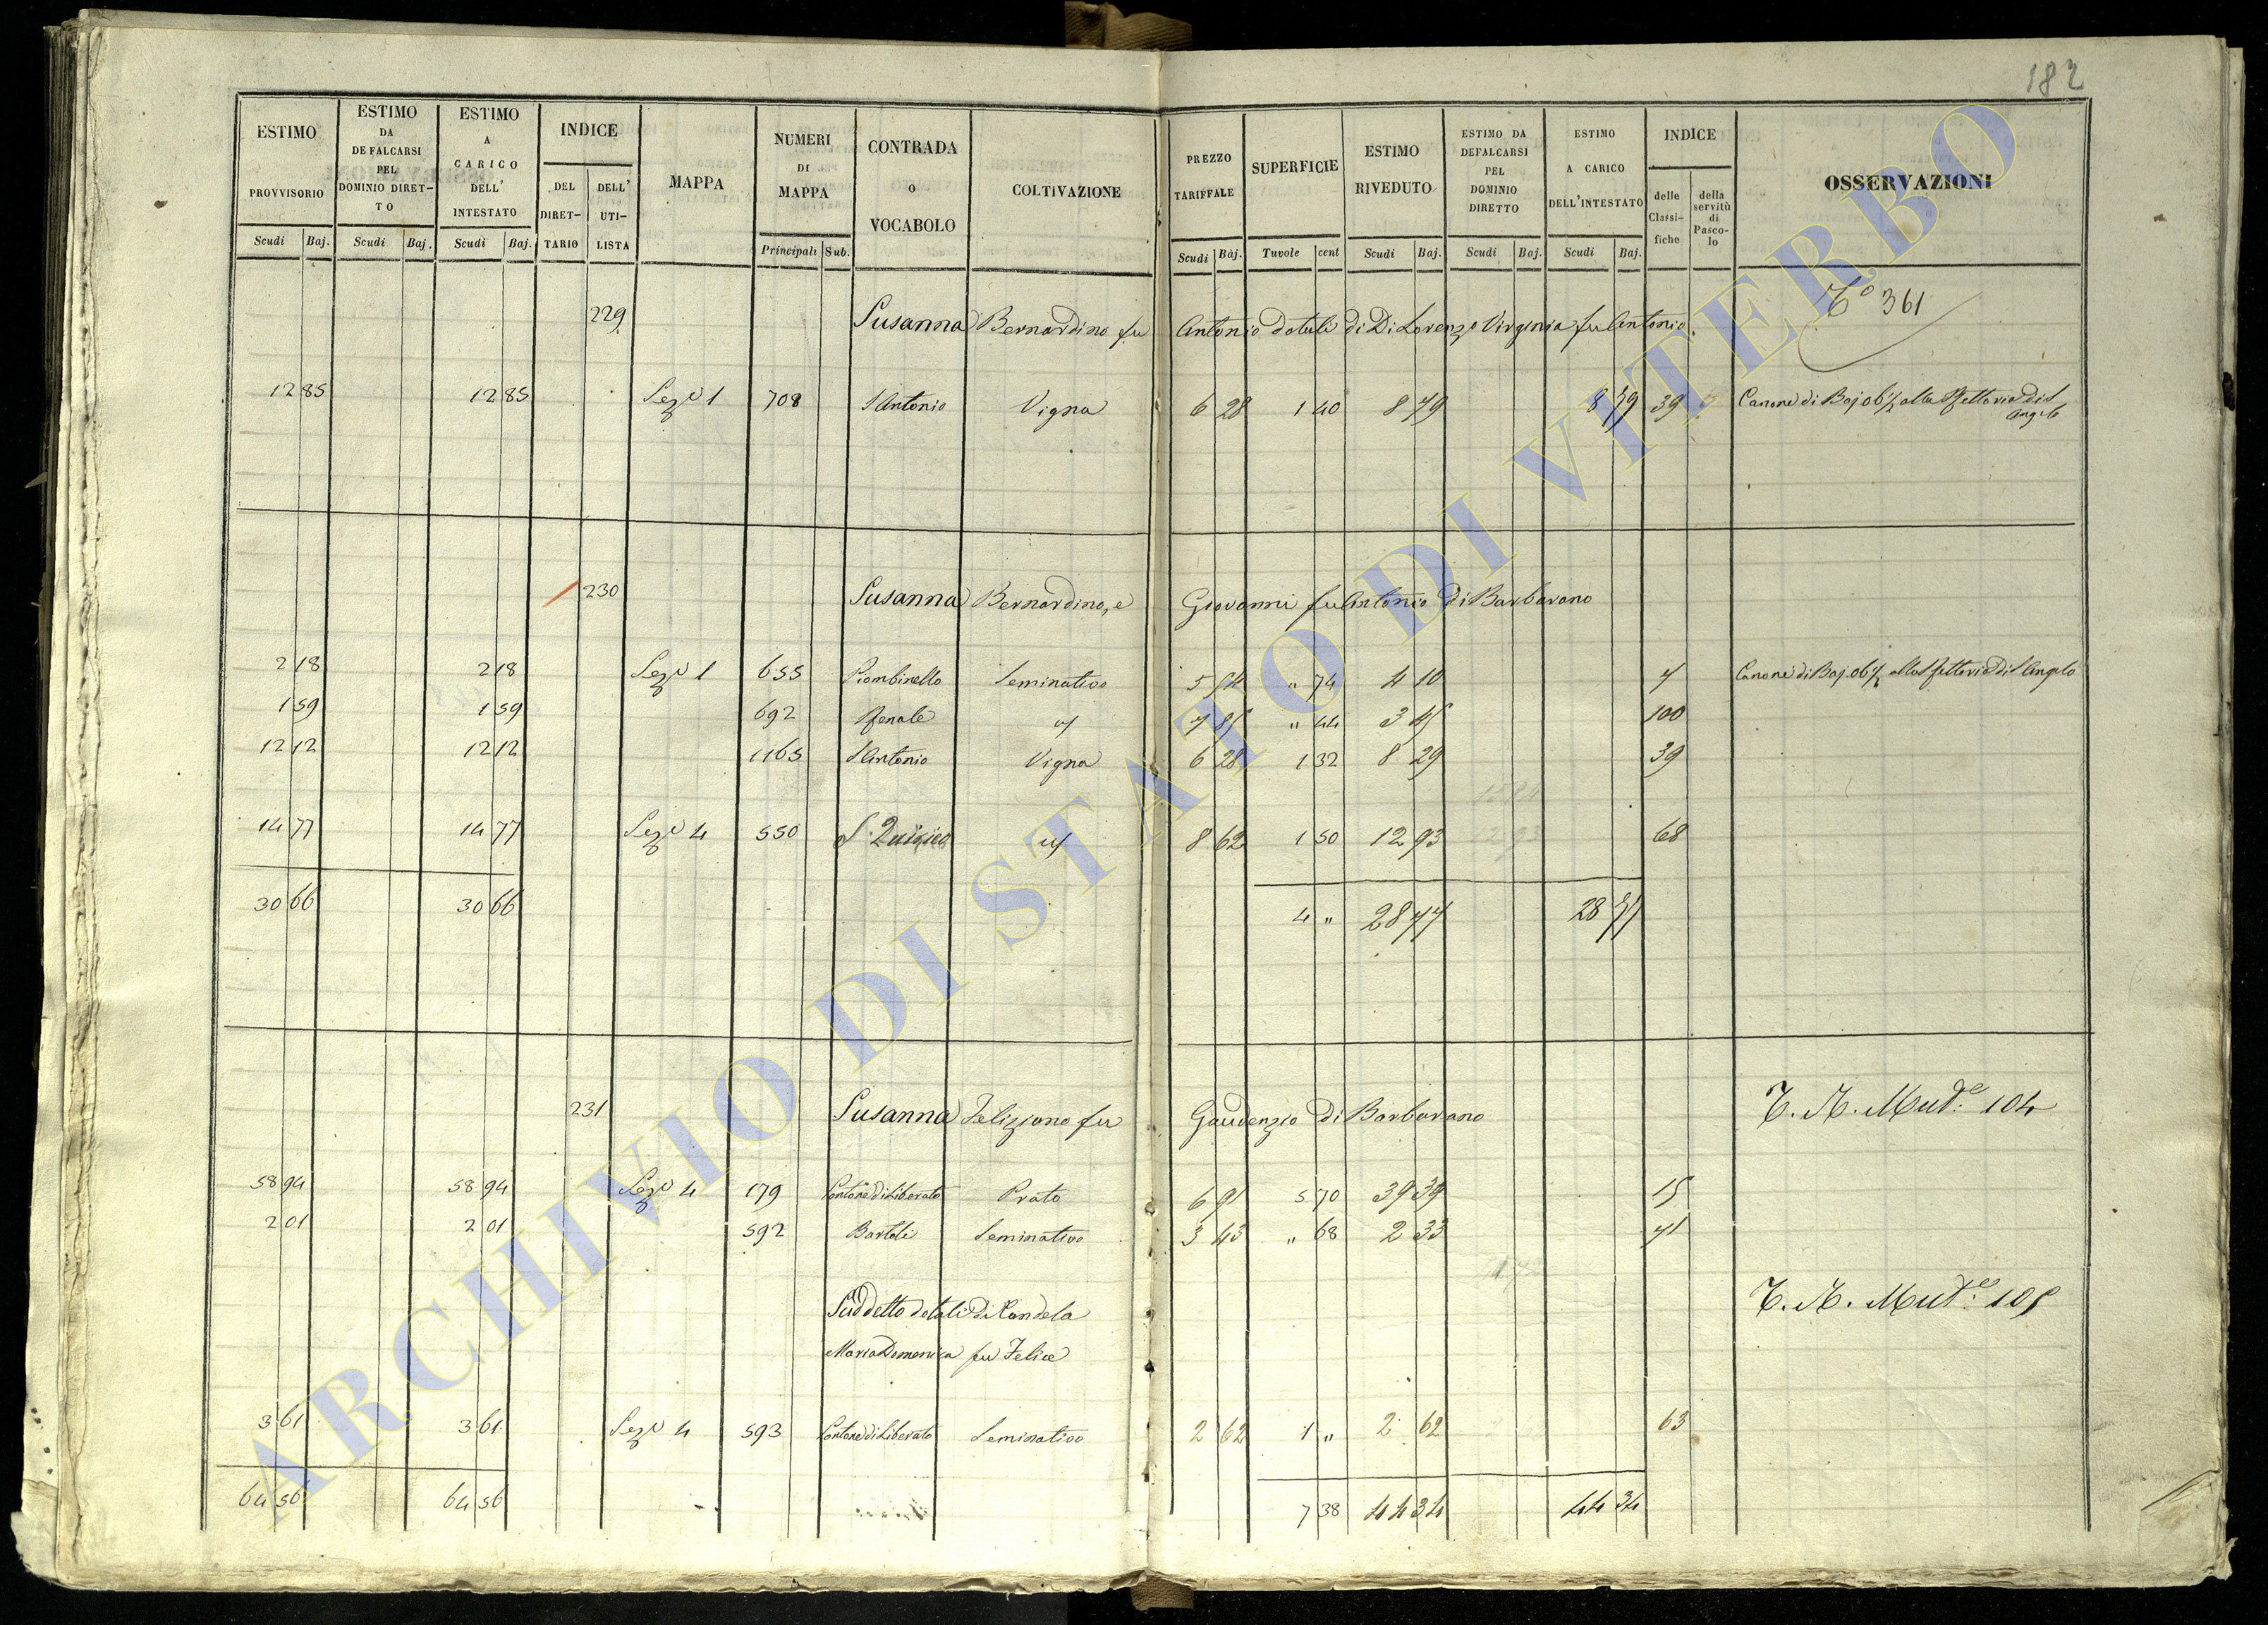 182
ESTIMO PROVVISORIO Scudi Baj.
ESTIMO DA DEFALCARSI PEL DOMINIO DIRET-TO Scudi Baj.
ESTIMO A CARICO DELL' INTESTATO Scudi Baj.
INDICE DEL DIRET-TARIO DELL' UTI-LISTA
MAPPA
NUMERI DI MAPPA Principali Sub.
CONTRADA O VOCABOLO
COLTIVAZIONE
PREZZO TARIFFALE Scudi Baj.
SUPERFICIE Tavole cent
ESTIMO RIVEDUTO Scudi Baj.
ESTIMO DA DEFALCARSI PEL DOMINIO DIRETTO Scudi Baj.
ESTIMO A CARICO DELL'INTESTATO Scudi Baj.
INDICE delle Classi-fiche della servitù di Pasco-lo
OSSERVAZIONI
229 Susanna Bernardino fu Antonio dotali di Di Lorenzo Virginia fu Antonio. Tº 361
12 85 12 85 Sezº 1 708 S Antonio Vigna 6 28 1 40 8 79 8 79 39 Canone di Baj 06 ½ alla Rettoria di S Angelo
230 Susanna Bernardino, e Giovanni fu Antonio di Barbarano
2 18 2 18 Sezº 1 655 Piombinello Seminativo 5 54 " 74 4 10 7 Canone di Baj. 06 ½ alla Rettoria di S Angelo
1 59 1 59 692 Renale 7 85 " 44 3 45 100
12 12 12 12 1165 S Antonio Vigna 6 28 1 32 8 29 39
14 77 14 77 Sezº 4 550 S. Quirico 8 62 1 50 12 93 68
30 66 30 66 4 " 28 77 28 77
231 Susanna Feliziano fu Gaudenzio di Barbarano T. N. Mut.e 104
58 94 58 94 Sezº 4 179 Contone di Liberato Prato 6 91 5 70 39 39 15
2 01 2 01 592 Bartoli Seminativo 3 43 " 68 2 33 71
Suddetto dotali di Candela T. N. Mut.e 105
Maria Domenica fu Felice
3 61 3 61 Sezº 4 593 Contone di Liberato Seminativo 2 62 1 " 2 62 63
64 56 64 56 7 38 44 34 44 34
ARCHIVIO DI STATO DI VITERBO